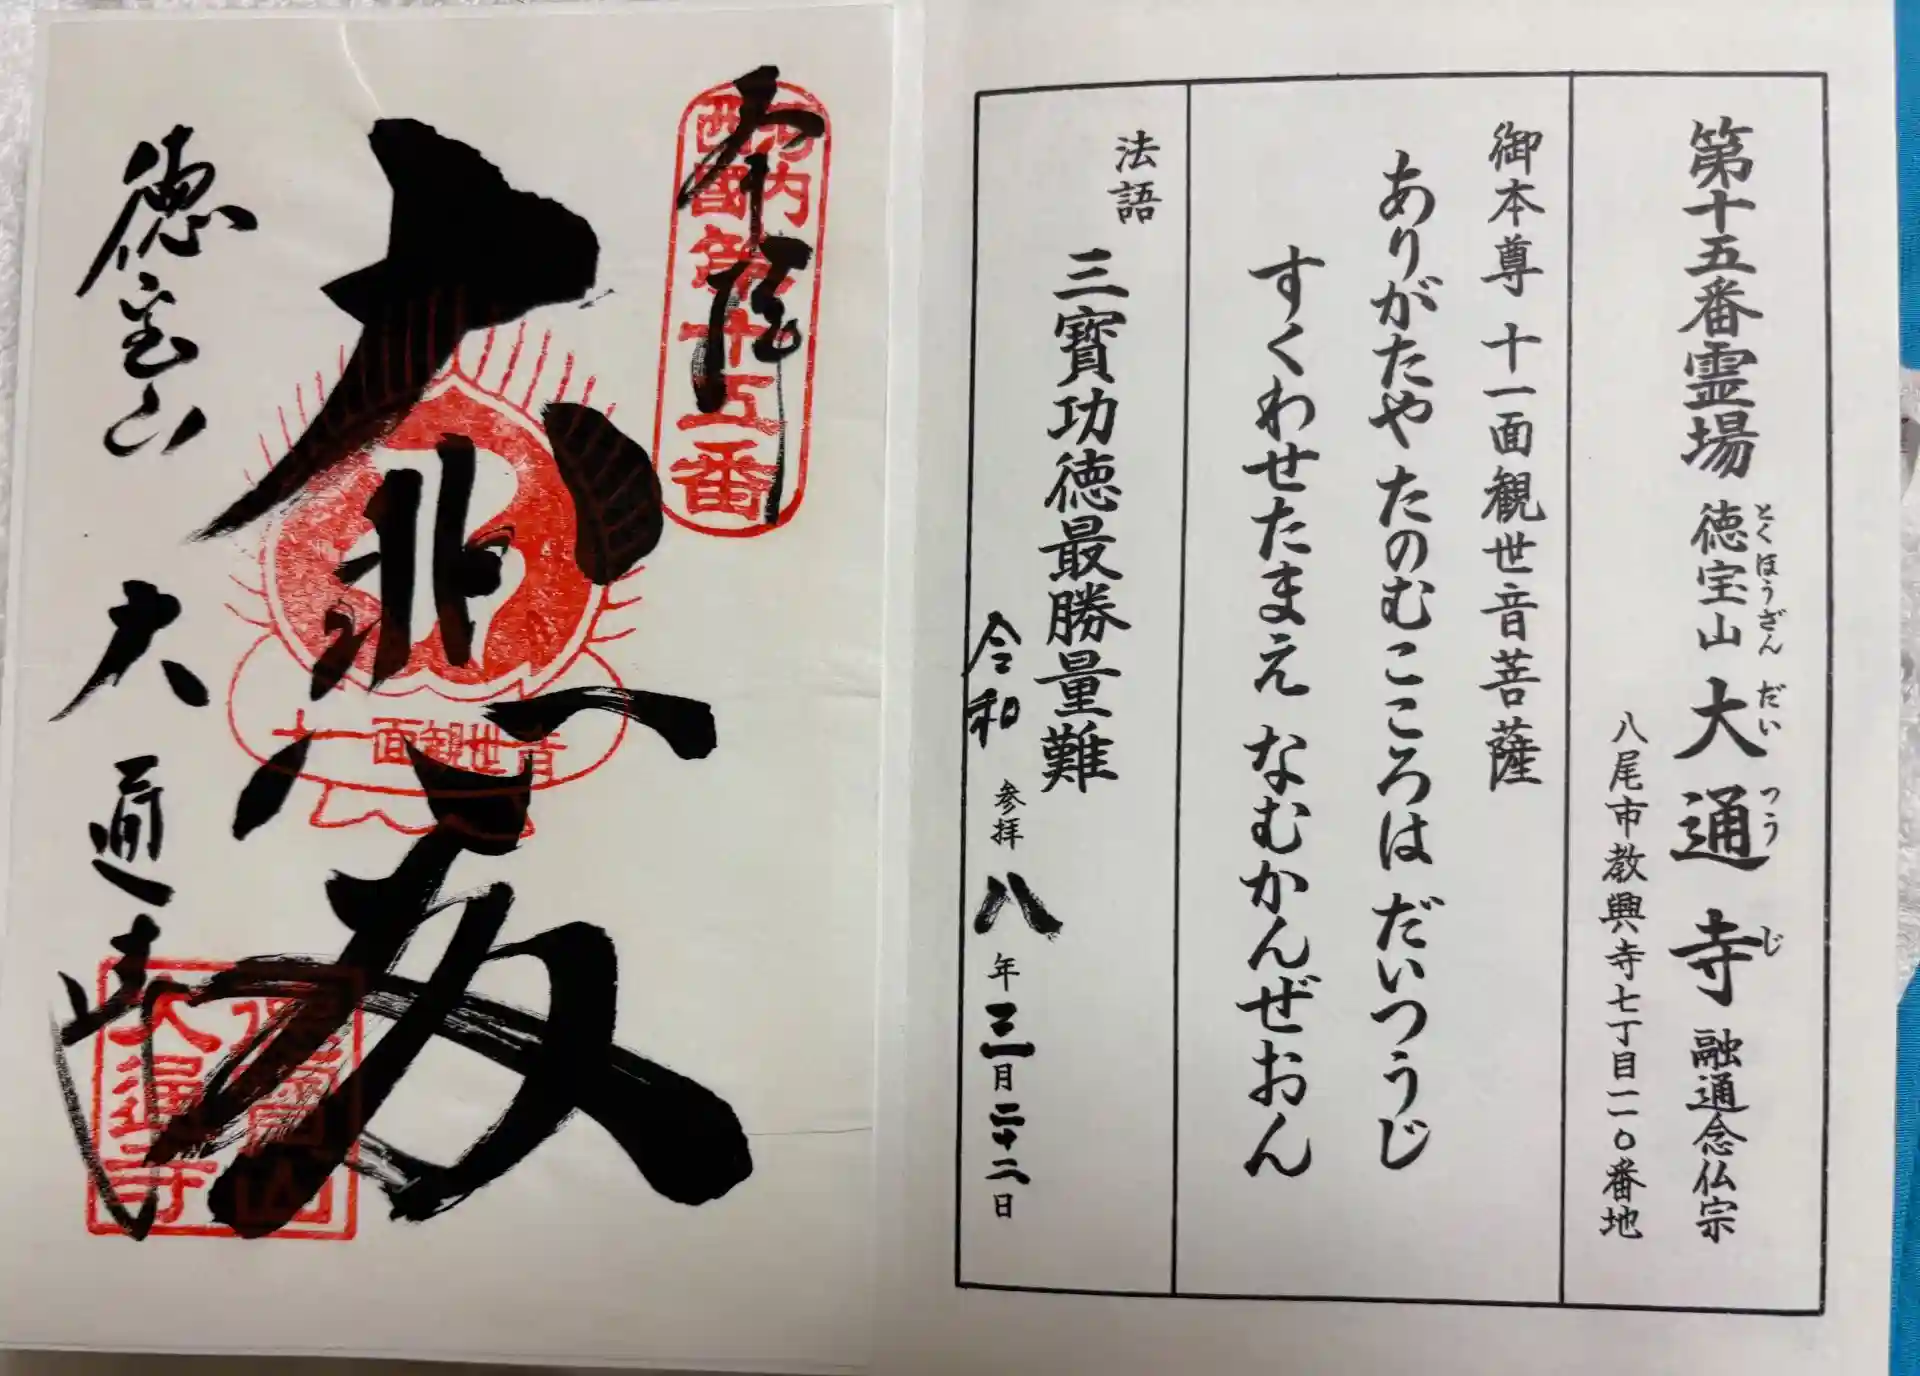 第十五番霊場 徳宝山 大通寺 融通念仏宗
とくほうざん だいつうじ
八尾市教興寺七丁目一二〇番地
御本尊 十一面観世音菩薩
ありがたや たのむこころは だいつうじ
すくわせたまえ なむかんぜおん
法語
三寳功徳最勝量難
令和 参拝 八年三月二十二日
奉拝
河内西國第十五番
大悲殿
十一面観世音
徳宝山 大通寺
徳寶山大通寺